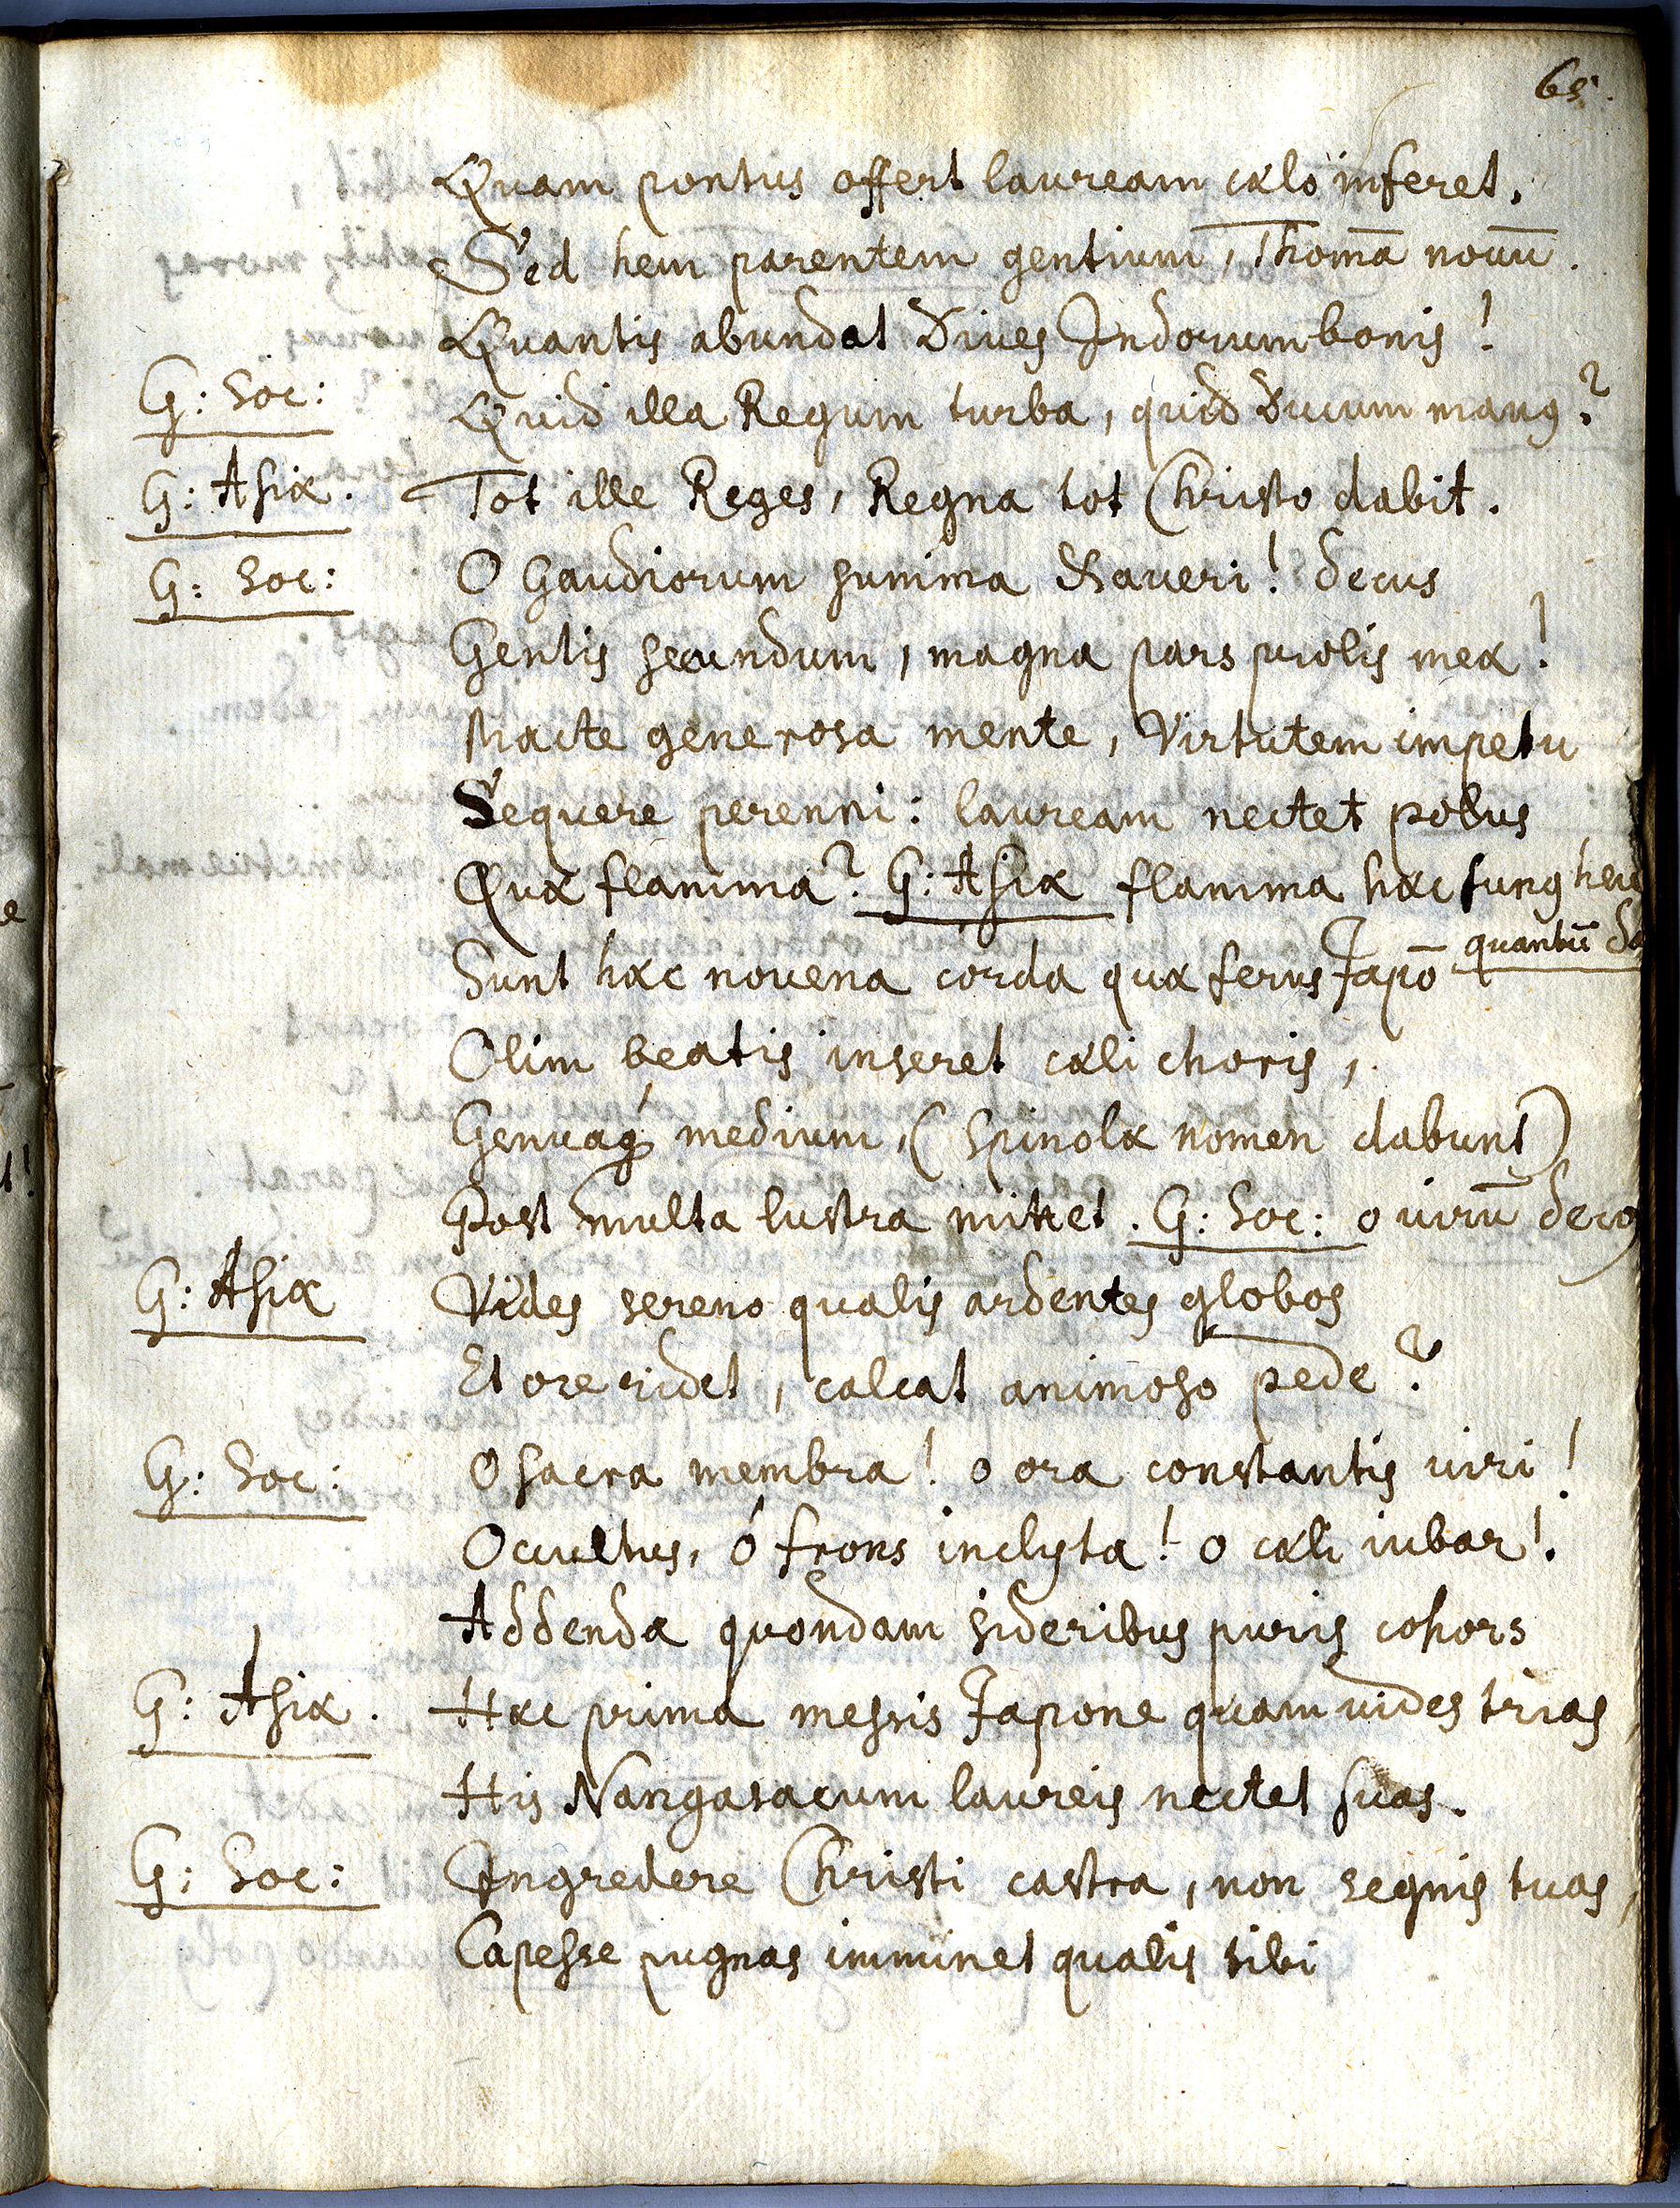 65.
Quam pontus offert lauream cælo inferet,
Sed hem parentem gentium, Thomā nouū.
Quantis abundat Diues Indorum bonis!
G: Soc: Quid illa Regum turba, quid Ducum manꝰ?
G: Asiæ. Tot ille Reges, Regna tot Christo dabit.
G: Soc: O Gaudiorum summa Xaueri! decus
Gentis secundum, magna pars prolis meæ!
Macte generosa mente, Virtutem impetu
Sequere perenni: lauream nectet polus
Quæ flamma? G: Asiæ flamma hæc funꝰ
quantū
Sunt hæc novena corda quæ ferus Japō
Olim beatis inseret cæli choris,
Genuaq́ medium, (Spinolæ nomen dabunt)
Post multa lustra mittet. G: Soc: o uirū decꝰ
G: Asiæ Vides sereno qualis ardentes globos
Et ore ridet, calcat animoso pede?
G: Soc: O sacra membra! o ora constantis uiri!
Occultus, ó frons inclyta! o cæli iubar!
Addenda quondam sideribus puris cohors
G: Asiæ. Hæc prima messis Japone quam uides trias,
His Nangasacum laureis nectet suas.
G: Soc: Ingredere Christi castra, non segnis tuas,
Capesse pugnas imminet qualis tibi